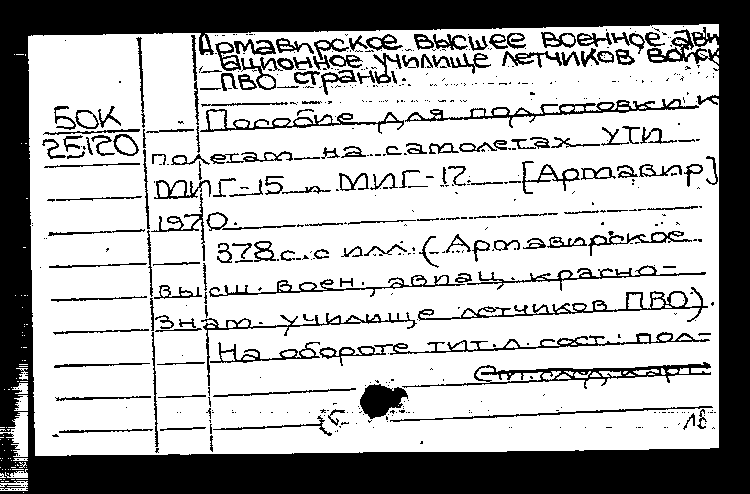 Армавирское высшее военное ави
ационное училище летчиков войск
ПВО страны.
50К
25120
Пособие для подготовки к
полетам на самолетах УТИ
МИГ-15 и МИГ-17. [Армавир]
1970.
378 с. с илл. (Армавирское
высш. воен., авиац. красно-
знам. училище летчиков ПВО).
На обороте тит. л. сост.: пол-
См. след. карт.
18